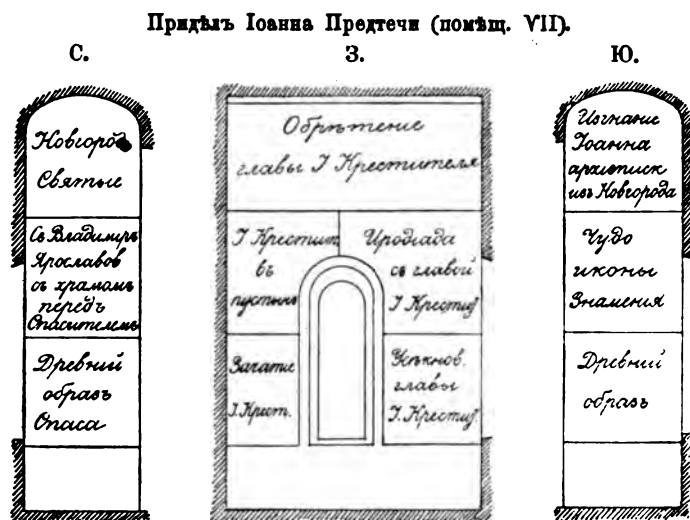 Придѣлъ Іоанна Предтечи (помѣщ. VII).
С.
Новгород
Святые
Св Владимиръ
Ярославов
съ храмомъ
передъ
Спасителемъ
Древний
образъ
Спаса
З.
Обрѣтение
главы I Крестителя
I Крестит.
въ
пустынѣ
Иродиада
съ главой
I Крестит.
Зачатие
I. Крест.
Усѣкнов.
главы
I. Крестит.
Ю.
Изгнание
Іоанна
архиеписк
изъ Новгорода
Чудо
иконы
Знамения
Древний
образъ